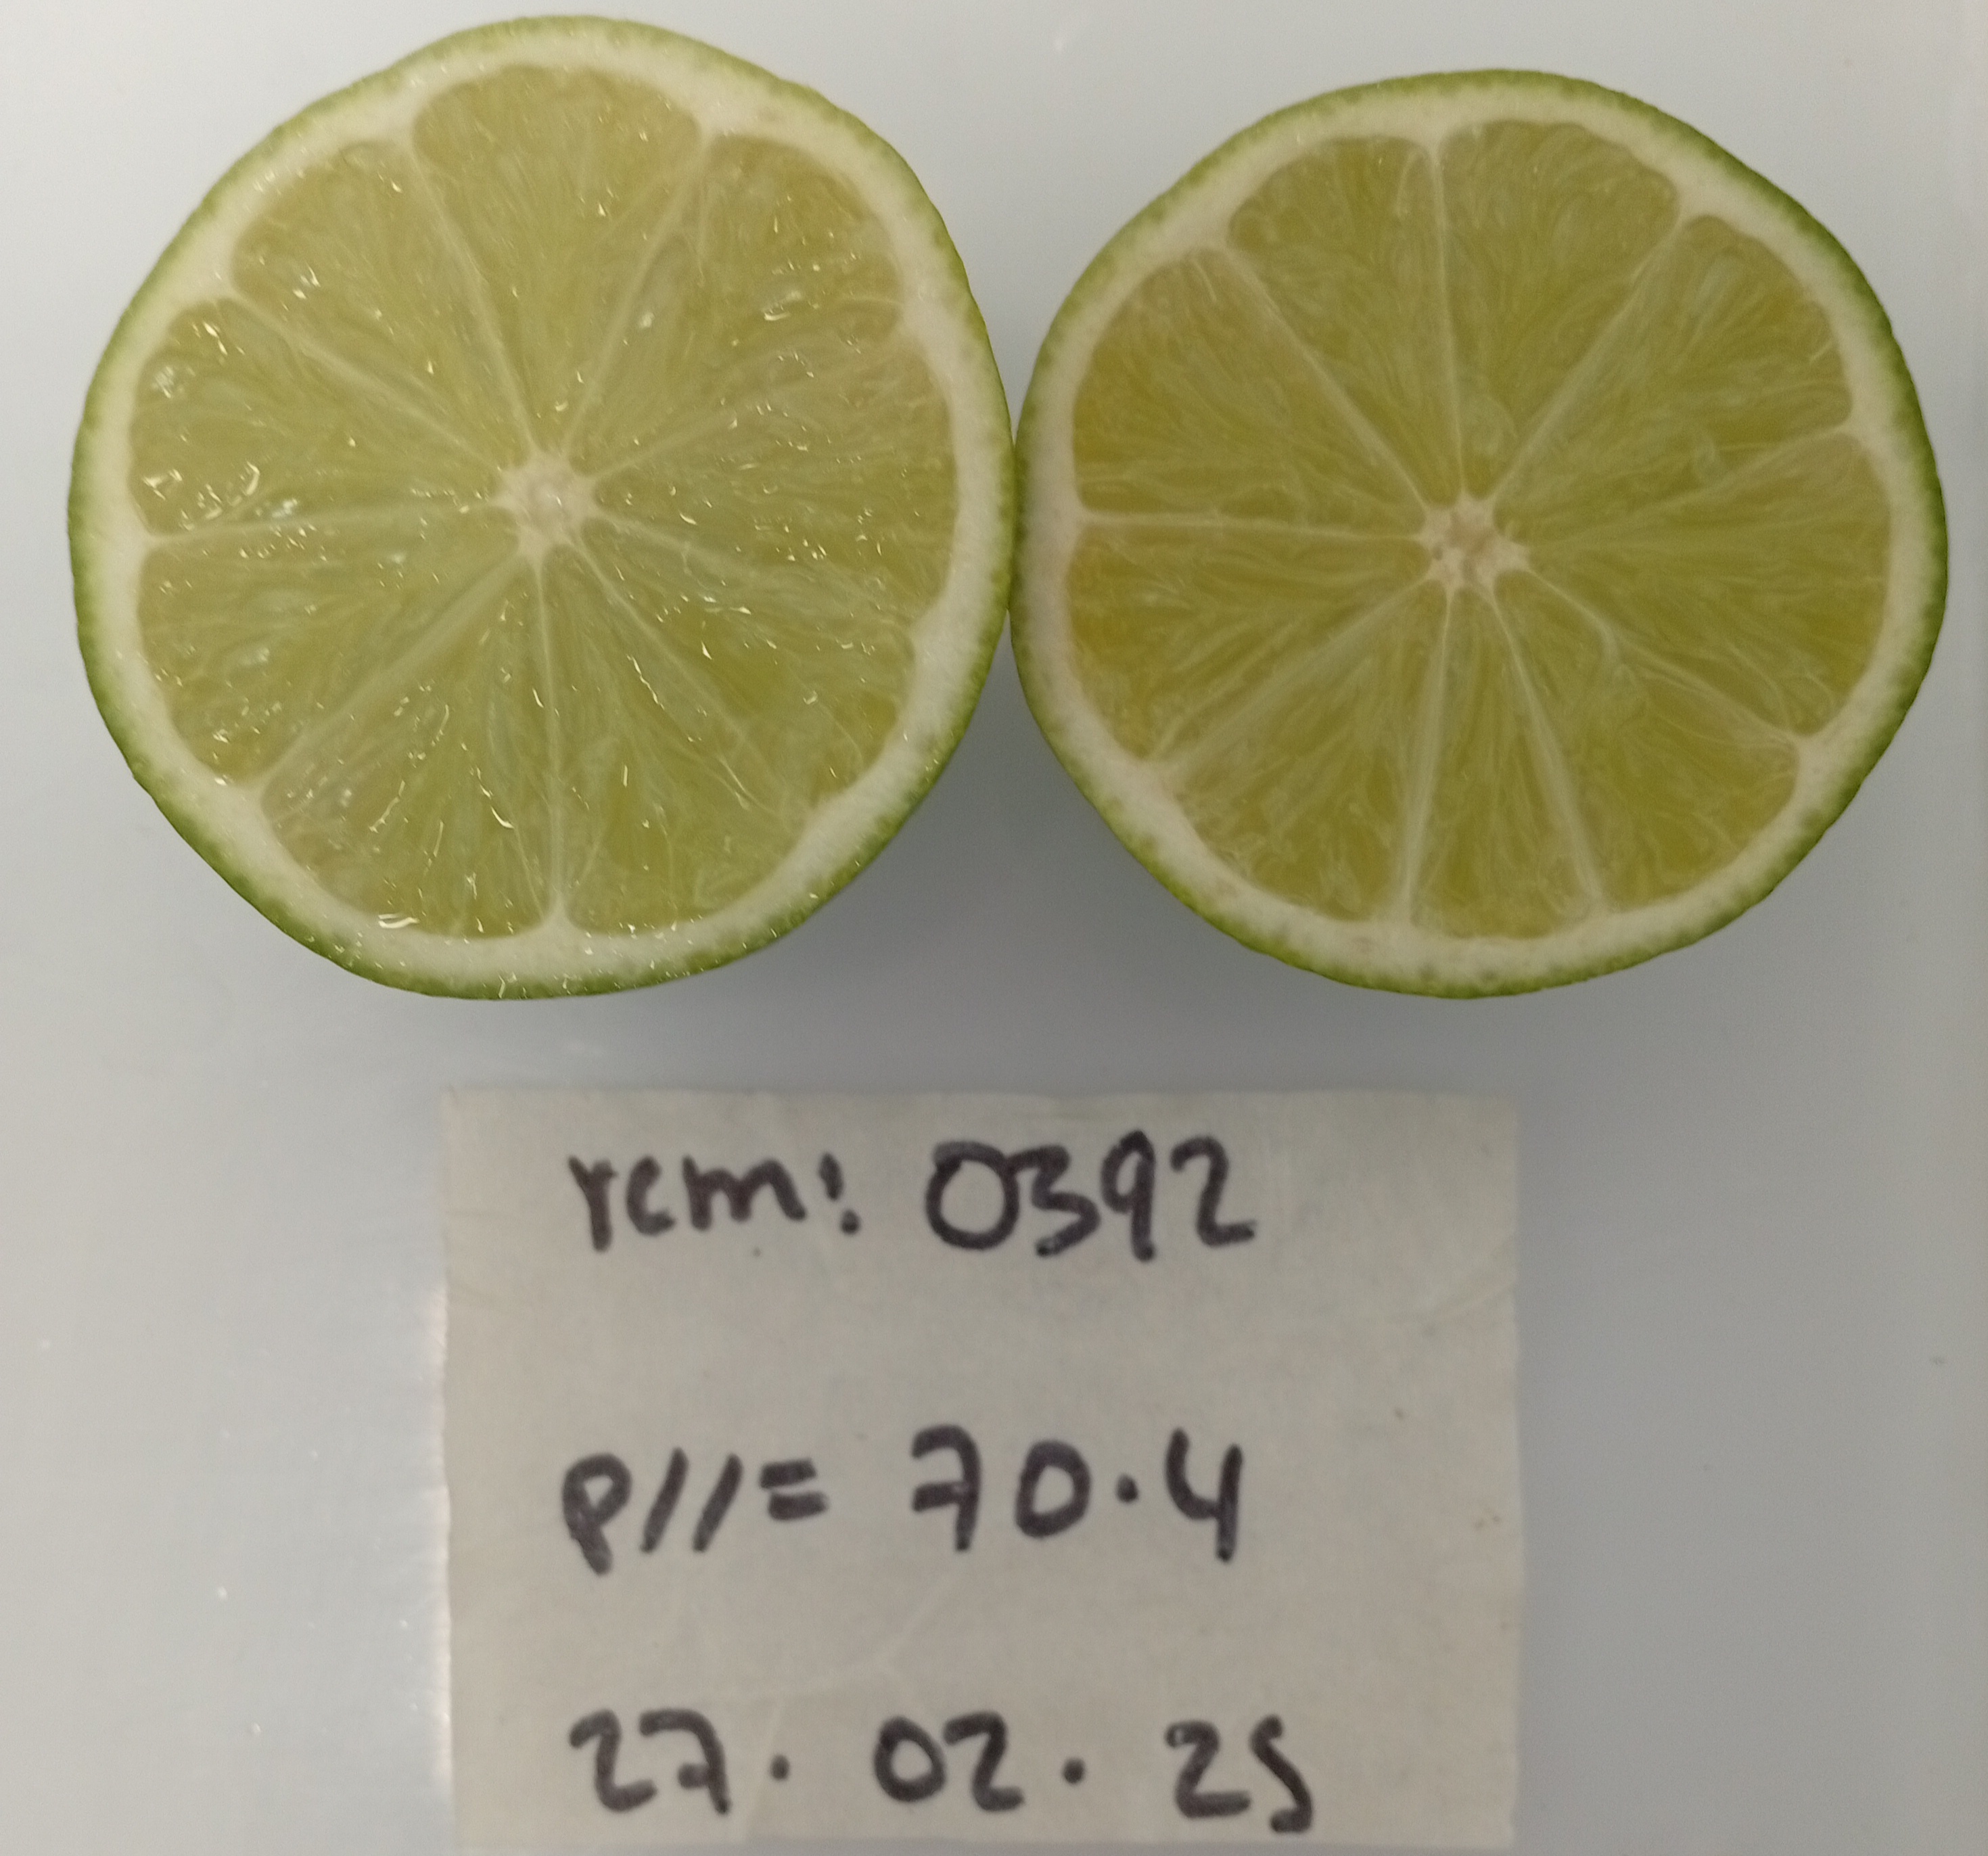 rcm: 0392
P//= 70.4
27. 02. 25